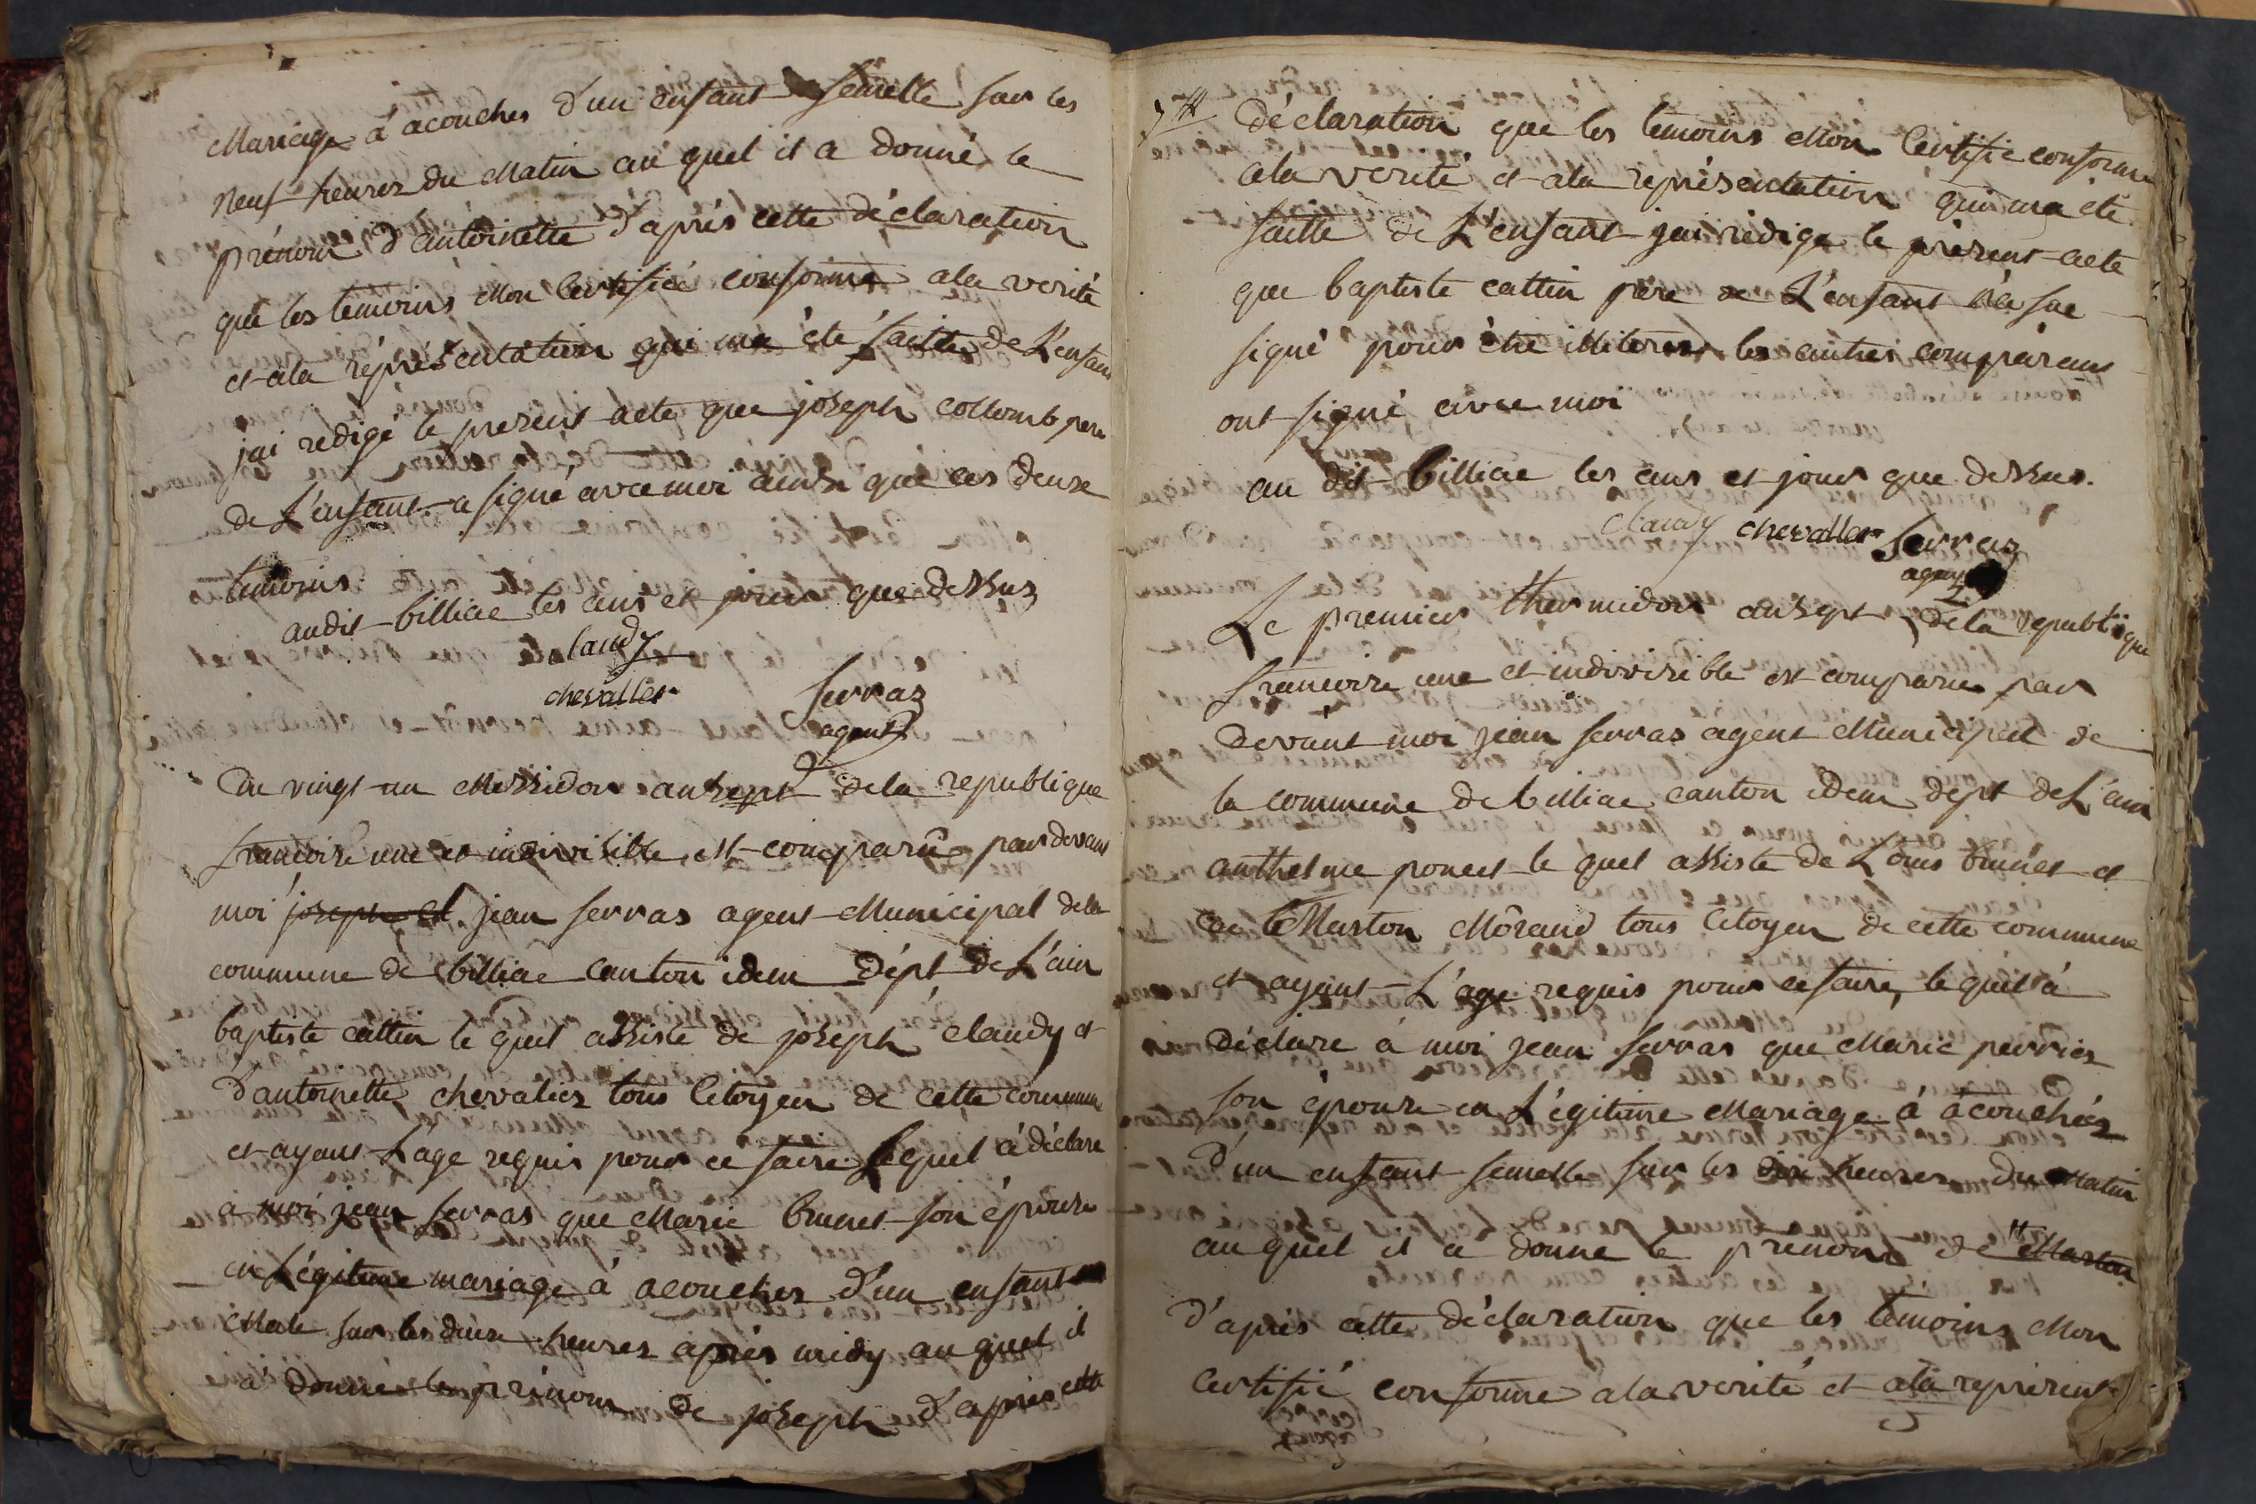 Mariage à acouches d'un enfant femelle sur les
neuf heures du Matin au quel il a donné le
prénom d'antoinette d'aprés cette déclaration
que les temoins Mon Certifié conforme ala verité
et ala répresentation qui ma été faitte de L'enfant
jai redigé le present acte que joseph collomb pere
de L'enfant a signé avec moi ainsi que ces deux
temoins
audit billiae les ans et jour que dessus
claudy
chevallier
serraz
agent
Du vingt un Messidor an sept de la republique
francoise une et indivisible est comparû par devant
moi joseph et jean serras agent Municipal de la
commune de billiae canton idem Dépt de L'ain
baptiste cattin le quel assisté de joseph claudy et
d'antoinette chevalier tous Citoyen de cette commune
et ayant L'age requis pour ce faire lequel à déclare
à moi jean serras que Marie brunet son épouse
en Légitime mariage à acoucher d'un enfant
Male sur les deux heures aprés midy au quel il
a donné le prénom de joseph d'aprés cette
Déclaration que les temoins Mon Certifié conforme
ala verité et ala représentation qui ma été
faitte de L'enfant jai rédigé le présent acte
que baptiste cattin père de L'enfant n'a sue
signé pour étre illiteres les autres comparans
ont signé avec moi
au dit billiae les ans et jour que dessus.
claudy chevallier serraz
agent
Le premier thermidor an sept de la republique
francoise une et indivisible est comparu par
devant moi jean serras agent Municipal de
la commune de billiae canton idem dépt de L'ain
anthelme poncet le quel assisté de Louis brunet et
de Marton Môrand tous Citoyen de cette commune
et ayant L'age requis pour ce faire, le quel à
déclare à moi jean serras que Marie perrier
son épouse en Légitime Mariage à acouchér
d'un enfant femelle sur les dix heures du Matin
au quel il a donne le prénom de Marton
D'aprés cette déclaration que les temoins Mon
Certifié conforme ala verité et ala represent